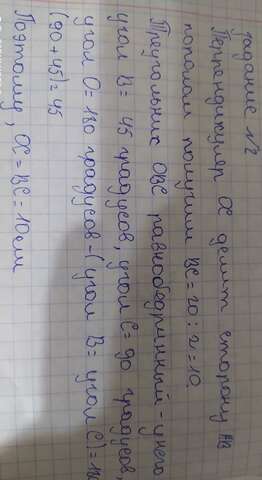 задание N 2
Перпендикуляр OC делит сторону AB
пополам получим BC = 20 : 2 = 10.
Треугольник OBC равнобедренный - у него
угол B = 45 градусов, угол C = 90 градусов,
угол O = 180 градусов - (угол B = угол C) = 180
(90 + 45) = 45
Поэтому, OC = BC = 10 см